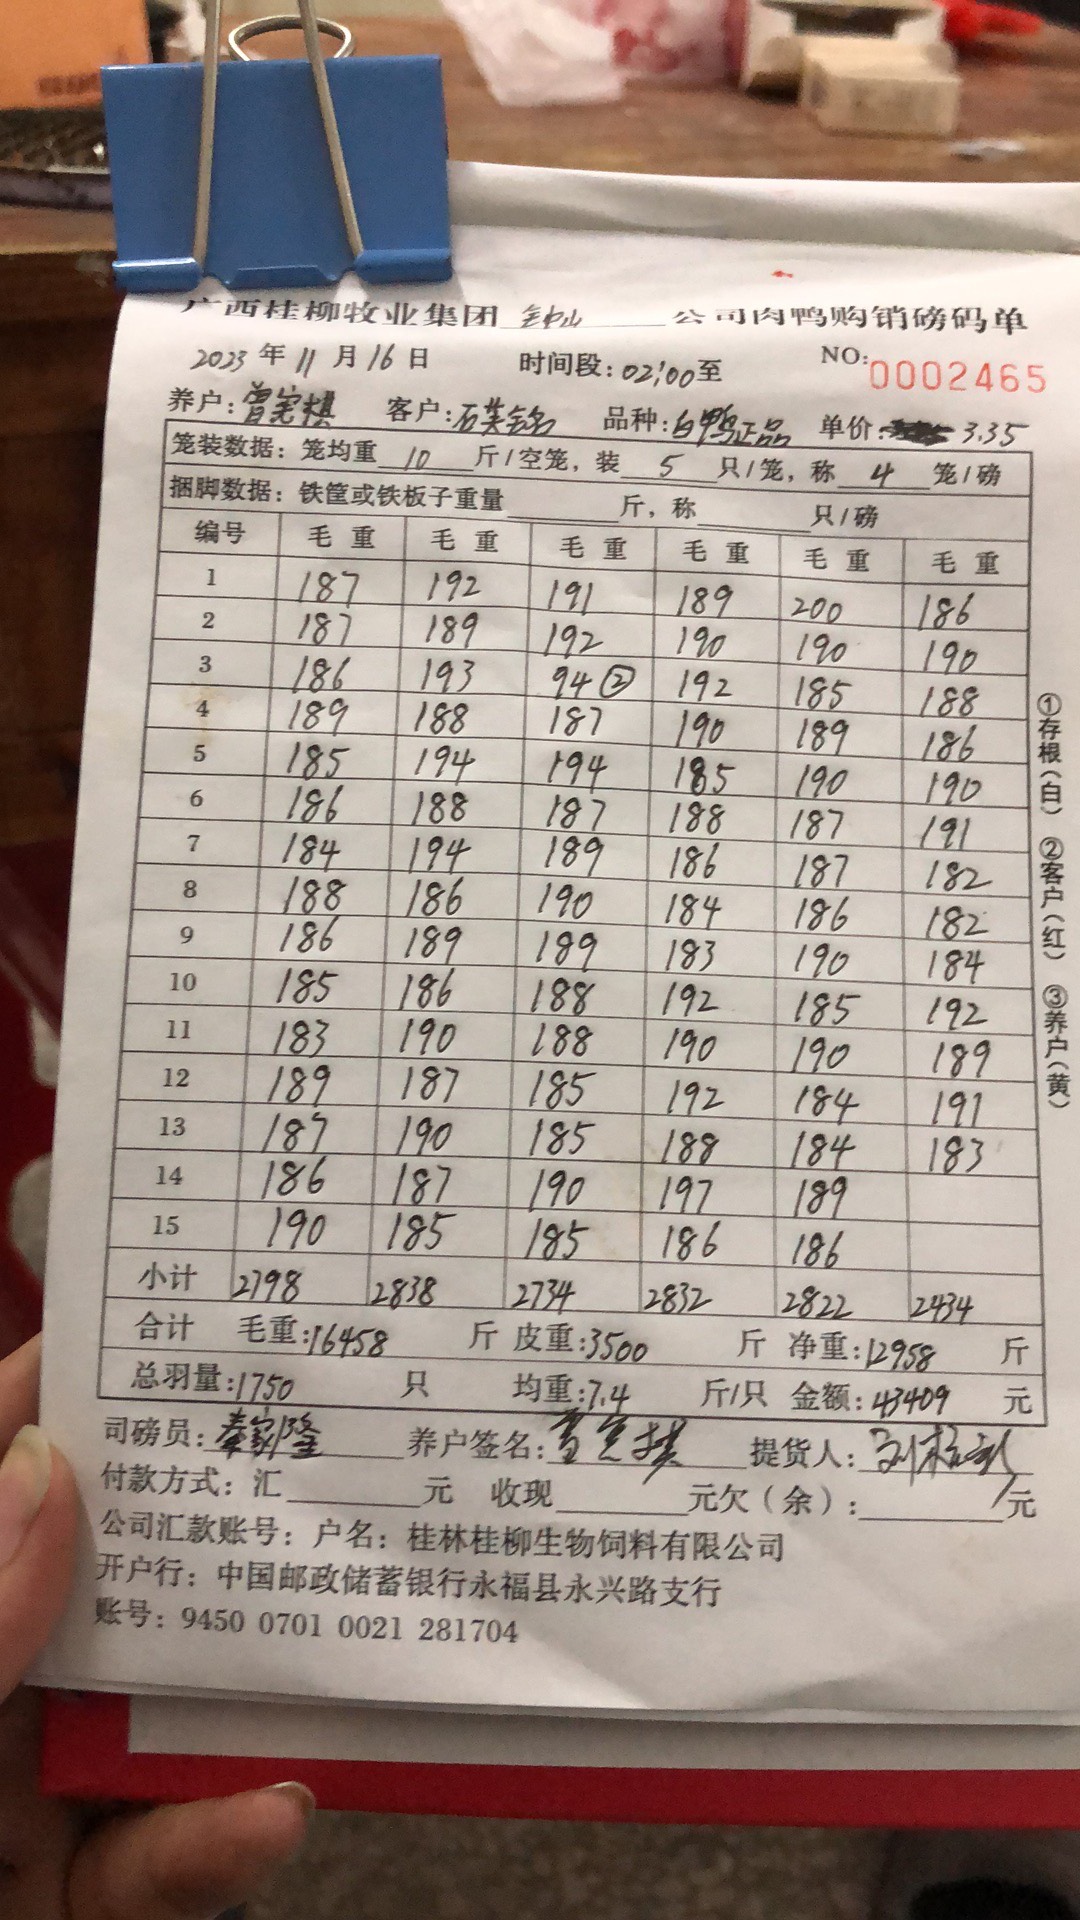 广西桂柳牧业集团 钟山 公司肉鸭购销磅码单
2023 年 11 月 16 日 时间段:02:00至 NO:0002465
养户: 客户: 品种:白鸭正品 单价: 3.35
笼装数据:笼均重 10 斤/空笼,装 5 只/笼,称 4 笼/磅
捆脚数据:铁筐或铁板子重量 斤,称 只/磅
编号 毛重 毛重 毛重 毛重 毛重 毛重
1 187 192 191 189 200 186
2 187 189 192 190 190 190
3 186 193 94② 192 185 188
4 189 188 187 190 189 186
5 185 194 194 185 190 190
6 186 188 187 188 187 191
7 184 194 189 186 187 182
8 188 186 190 184 186 182
9 186 189 189 183 190 184
10 185 186 188 192 185 192
11 183 190 188 190 190 189
12 189 187 185 192 184 191
13 187 190 185 188 184 183
14 186 187 190 197 189
15 190 185 185 186 186
小计 2798 2838 2734 2832 2822 2434
合计 毛重:16458 斤 皮重:3500 斤 净重:12958 斤
总羽量:1750 只 均重:7.4 斤/只 金额:43409 元
司磅员:秦家隆 养户签名: 提货人:
付款方式:汇 元 收现 元欠(余): 元
公司汇款账号:户名:桂林桂柳生物饲料有限公司
开户行:中国邮政储蓄银行永福县永兴路支行
账号:9450 0701 0021 281704
①存根(白) ②客户(红) ③养户(黄)